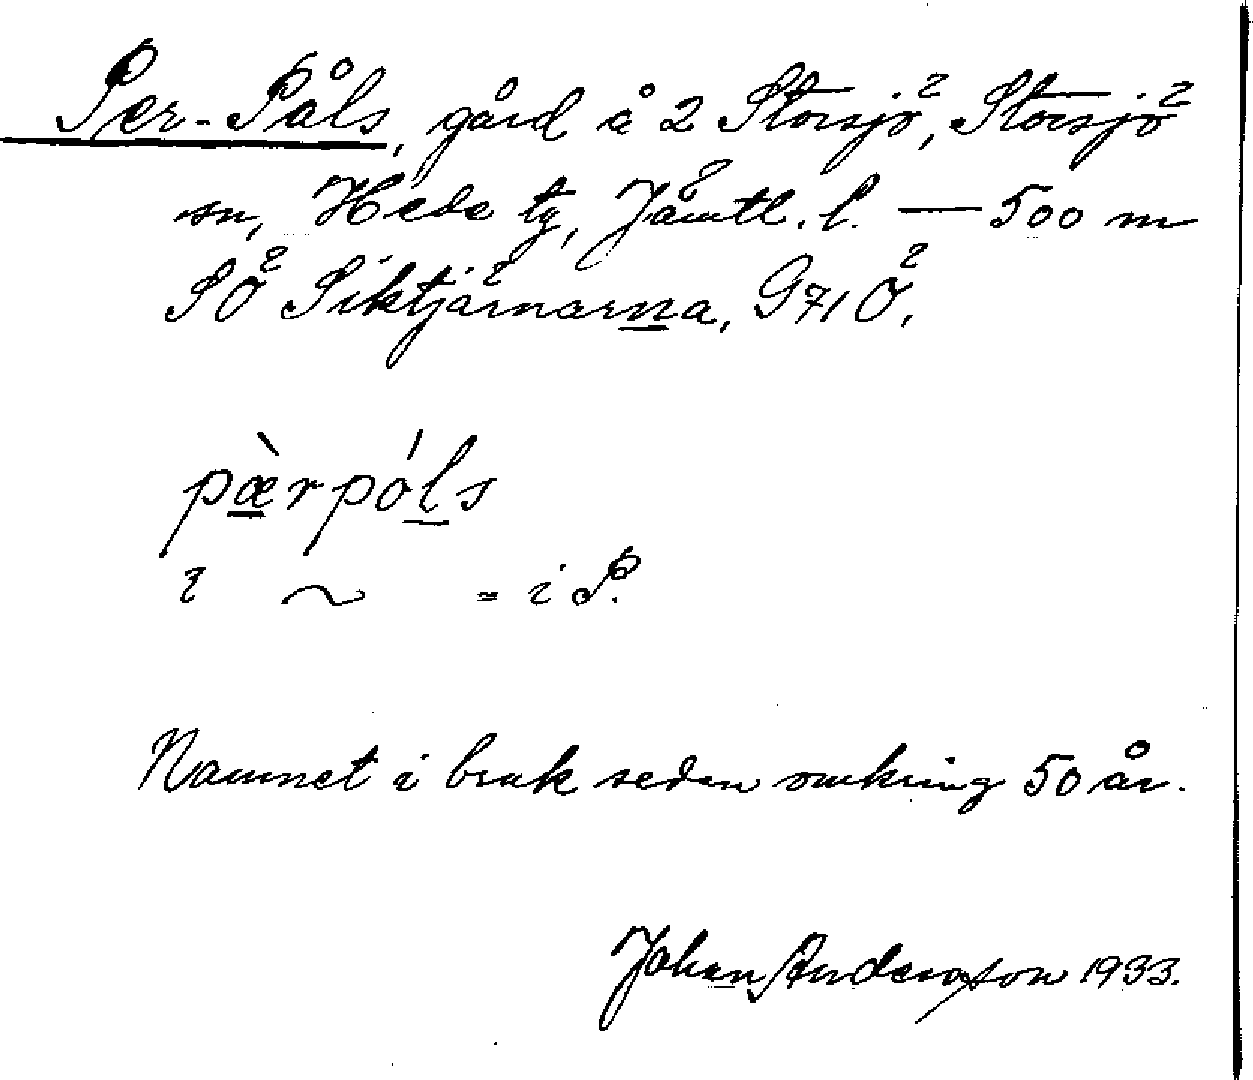 Per-Påls, gård å 2 Storsjö, Storsjö
sn, Hede tg, Jämtl. l. — 500 m
SÖ Siktjärnarna, G71Ö,
pæ̀rpóls
i ~ = i P.
Namnet i bruk sedan omkring 50 år.
Johan Andersson 1933.